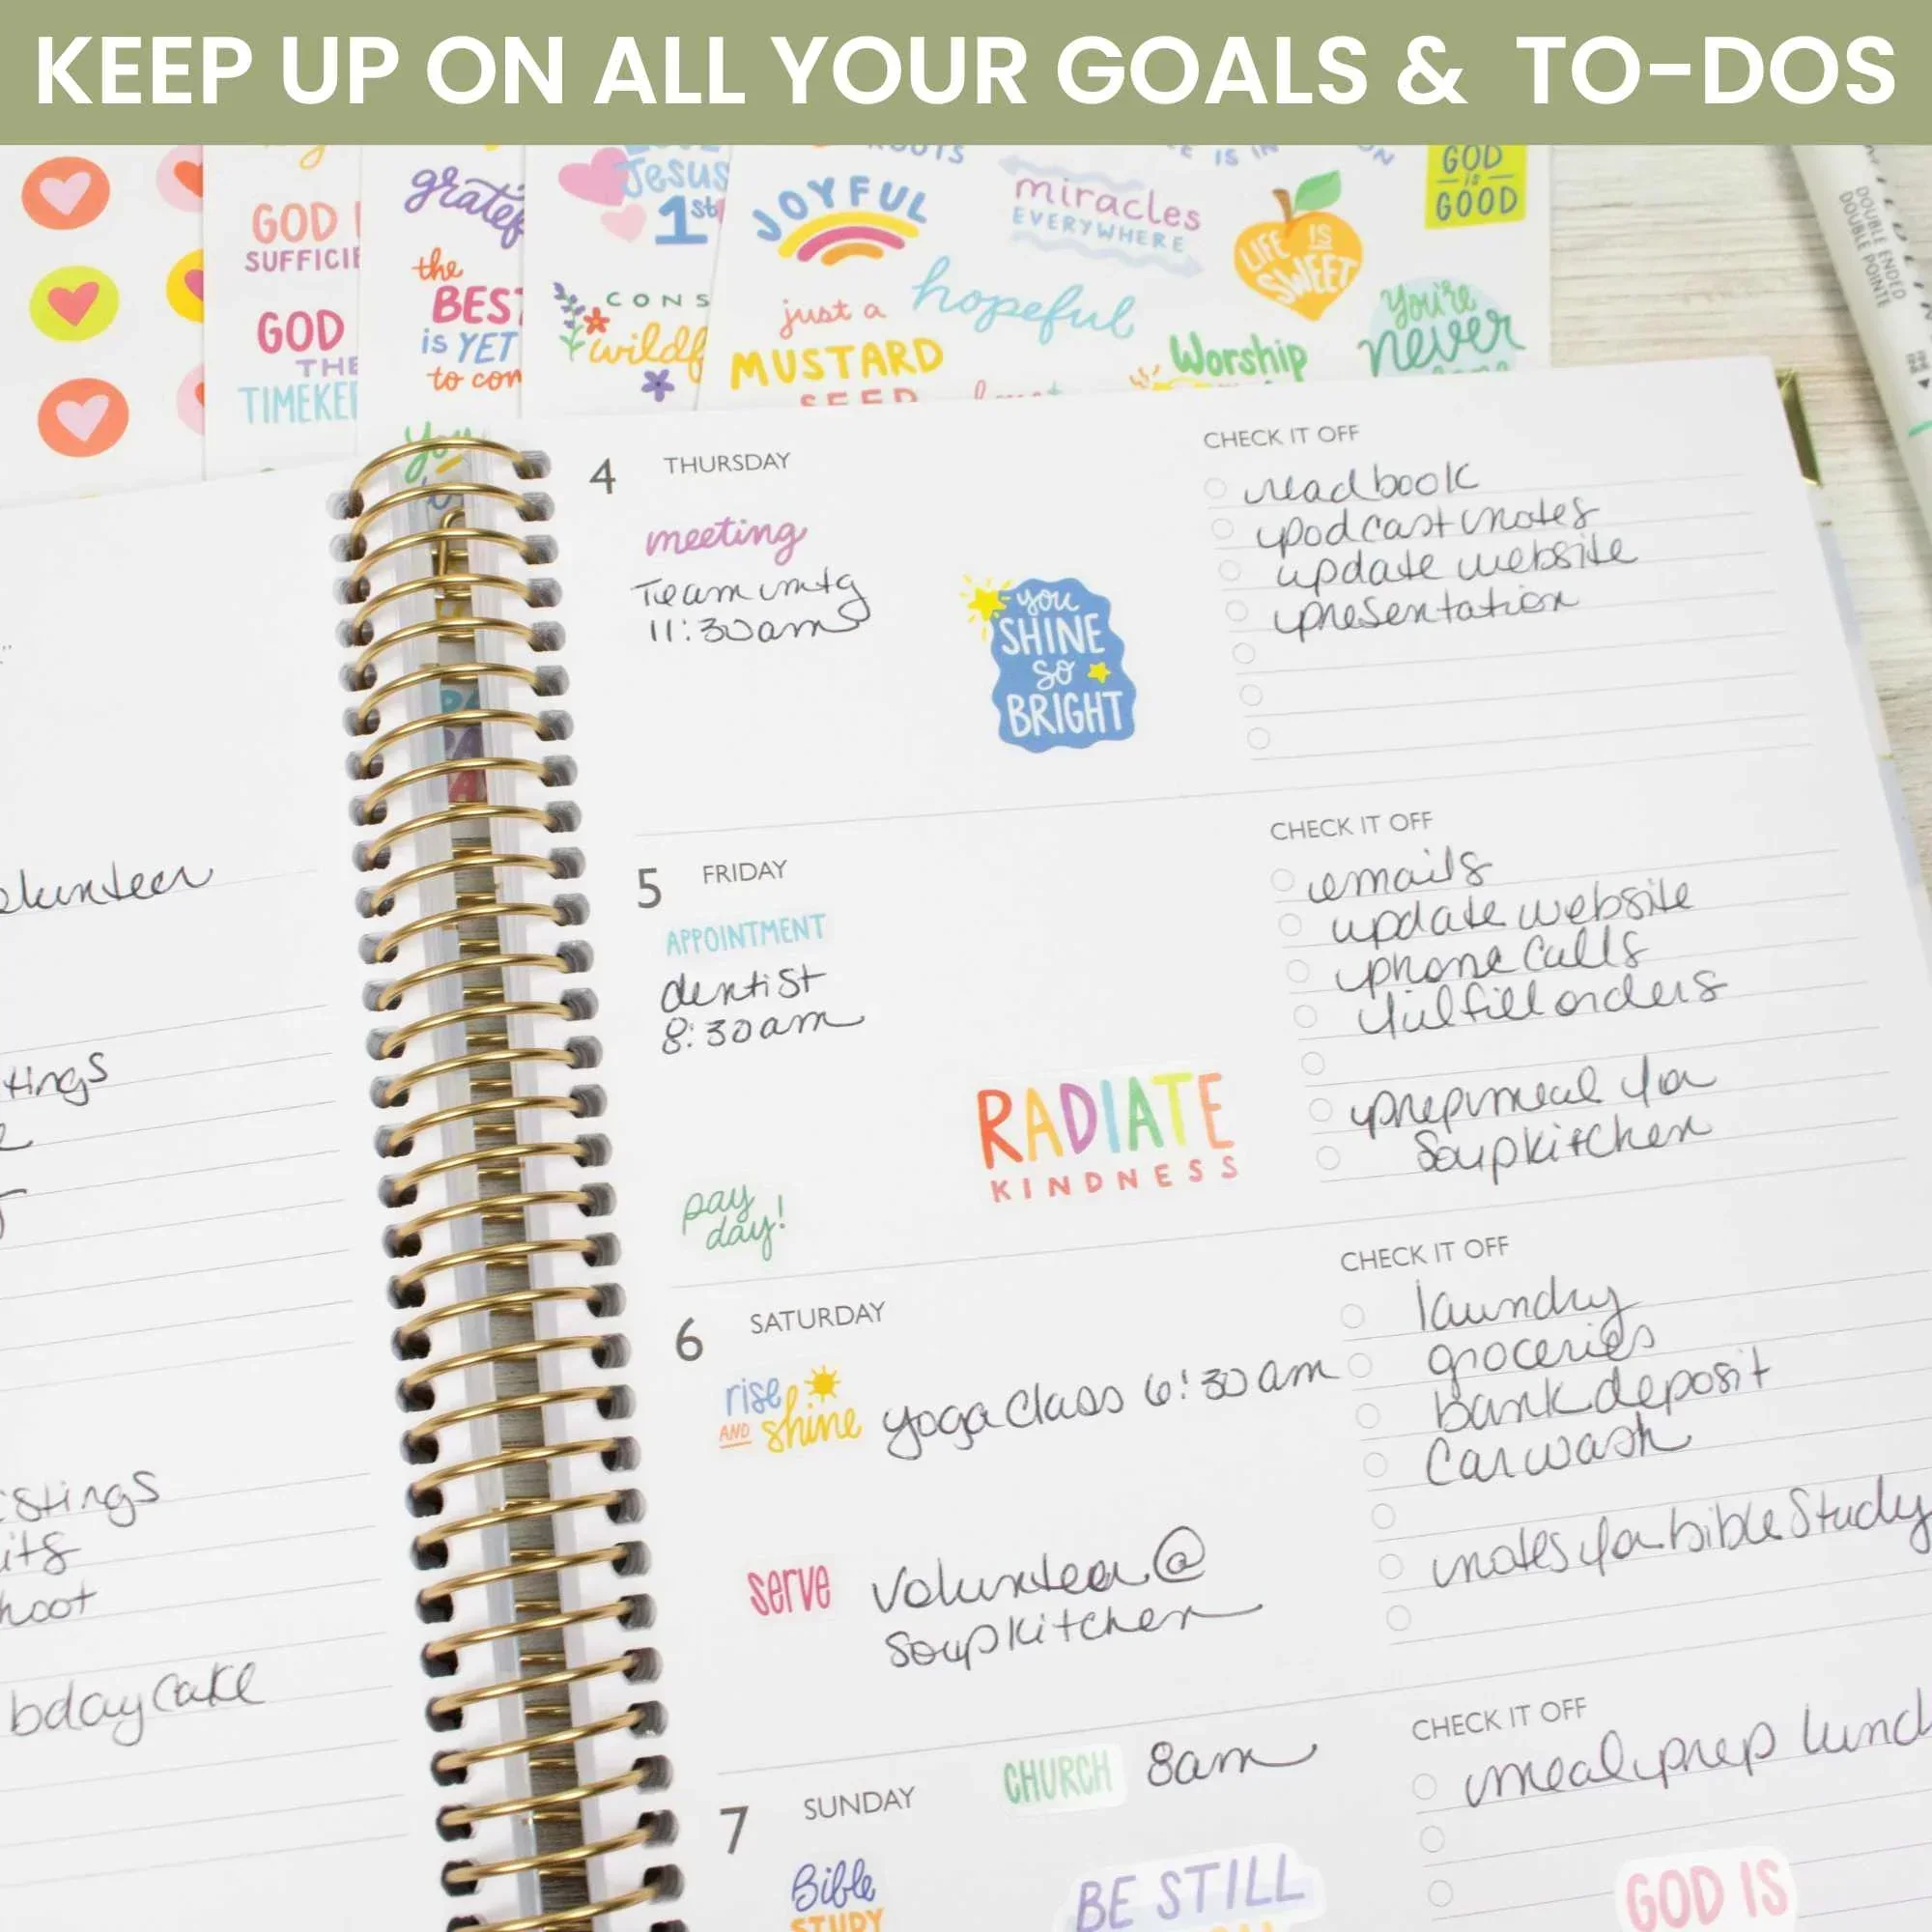 KEEP UP ON ALL YOUR GOALS & TO-DOS
GOD
SUFFICIE
GOD
THE
TIMEKE
gratef
the
BEST
is YET
to com
you
Jesus
1st
CONS
wildf
JOYFUL
just a
MUSTARD
SEED
miracles
EVERYWHERE
hopeful
Worship
LIFE IS
SWEET
GOD
is
GOOD
You're
never
DOUBLE ENDED
DOUBLE POINTE
olunteer
tings
stings
its
hoot
bday cake
4 THURSDAY
meeting
Team mtg
11:30am
you
SHINE
so
BRIGHT
CHECK IT OFF
read book
podcast notes
update website
presentation
5 FRIDAY
APPOINTMENT
dentist
8:30am
RADIATE
KINDNESS
pay
day!
CHECK IT OFF
emails
update website
phone calls
fulfill orders
prep meal for
Soup kitchen
6 SATURDAY
rise
AND shine
yoga class 6:30am
serve
Volunteer @
Soup kitchen
CHECK IT OFF
laundry
groceries
bank deposit
Car wash
notes for bible Study
7 SUNDAY
CHURCH 8am
Bible
STUDY
BE STILL
CHECK IT OFF
meal prep lunc
GOD IS